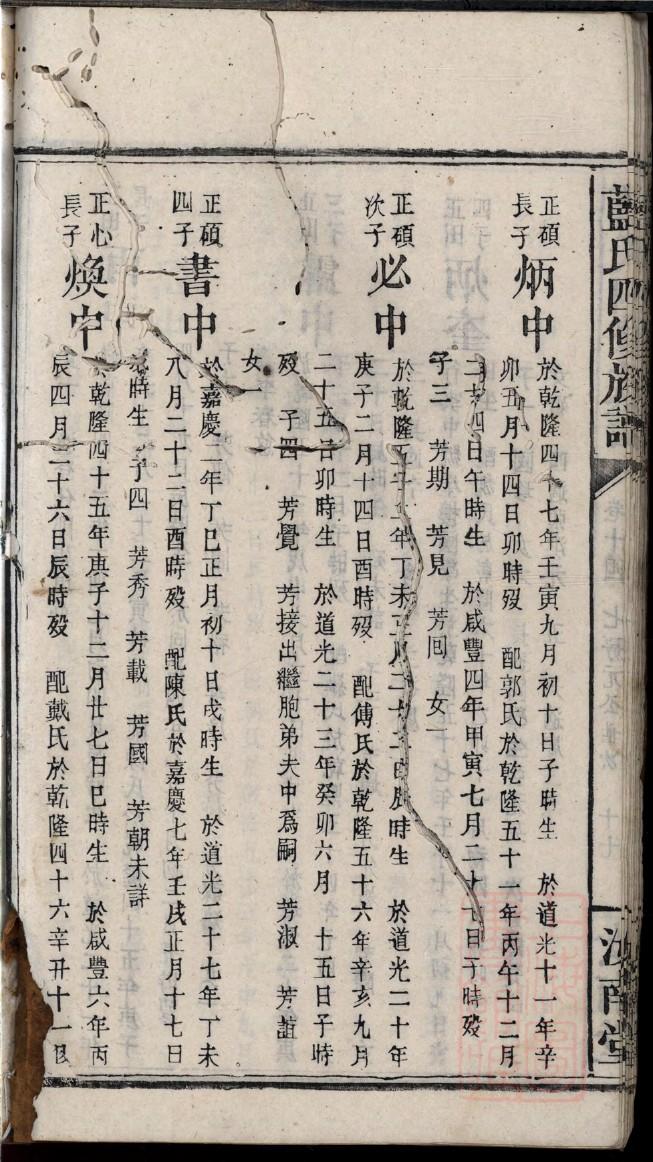 藍氏四修族譜
汝南堂
正碩長子 炳中
於乾隆四十七年壬寅九月初十日子時生 於道光十一年辛
卯五月十四日卯時歿 配郭氏於乾隆五十一年丙午十二月
二十四日午時生 於咸豐四年甲寅七月二十七日子時歿
子三 芳期 芳見 芳回 女一
正碩次子 必中
於乾隆五十二年丁未正月二十 日 時生 於道光二十年
庚子二月十四日酉時歿 配傅氏於乾隆五十六年辛亥九月
二十五日卯時生 於道光二十三年癸卯六月 十五日子時
歿 子四 芳覺 芳接出繼胞弟夫中為嗣 芳淑 芳誼
女一
正碩四子 書中
於嘉慶二年丁巳正月初十日戌時生 於道光二十七年丁未
八月二十二日酉時歿 配陳氏於嘉慶七年壬戌正月十七日
時生 子四 芳秀 芳載 芳國 芳朝未詳
正心長子 煥中
於乾隆四十五年庚子十二月廿七日巳時生 於咸豐六年丙
辰四月二十六日辰時歿 配戴氏於乾隆四十六辛丑十一月